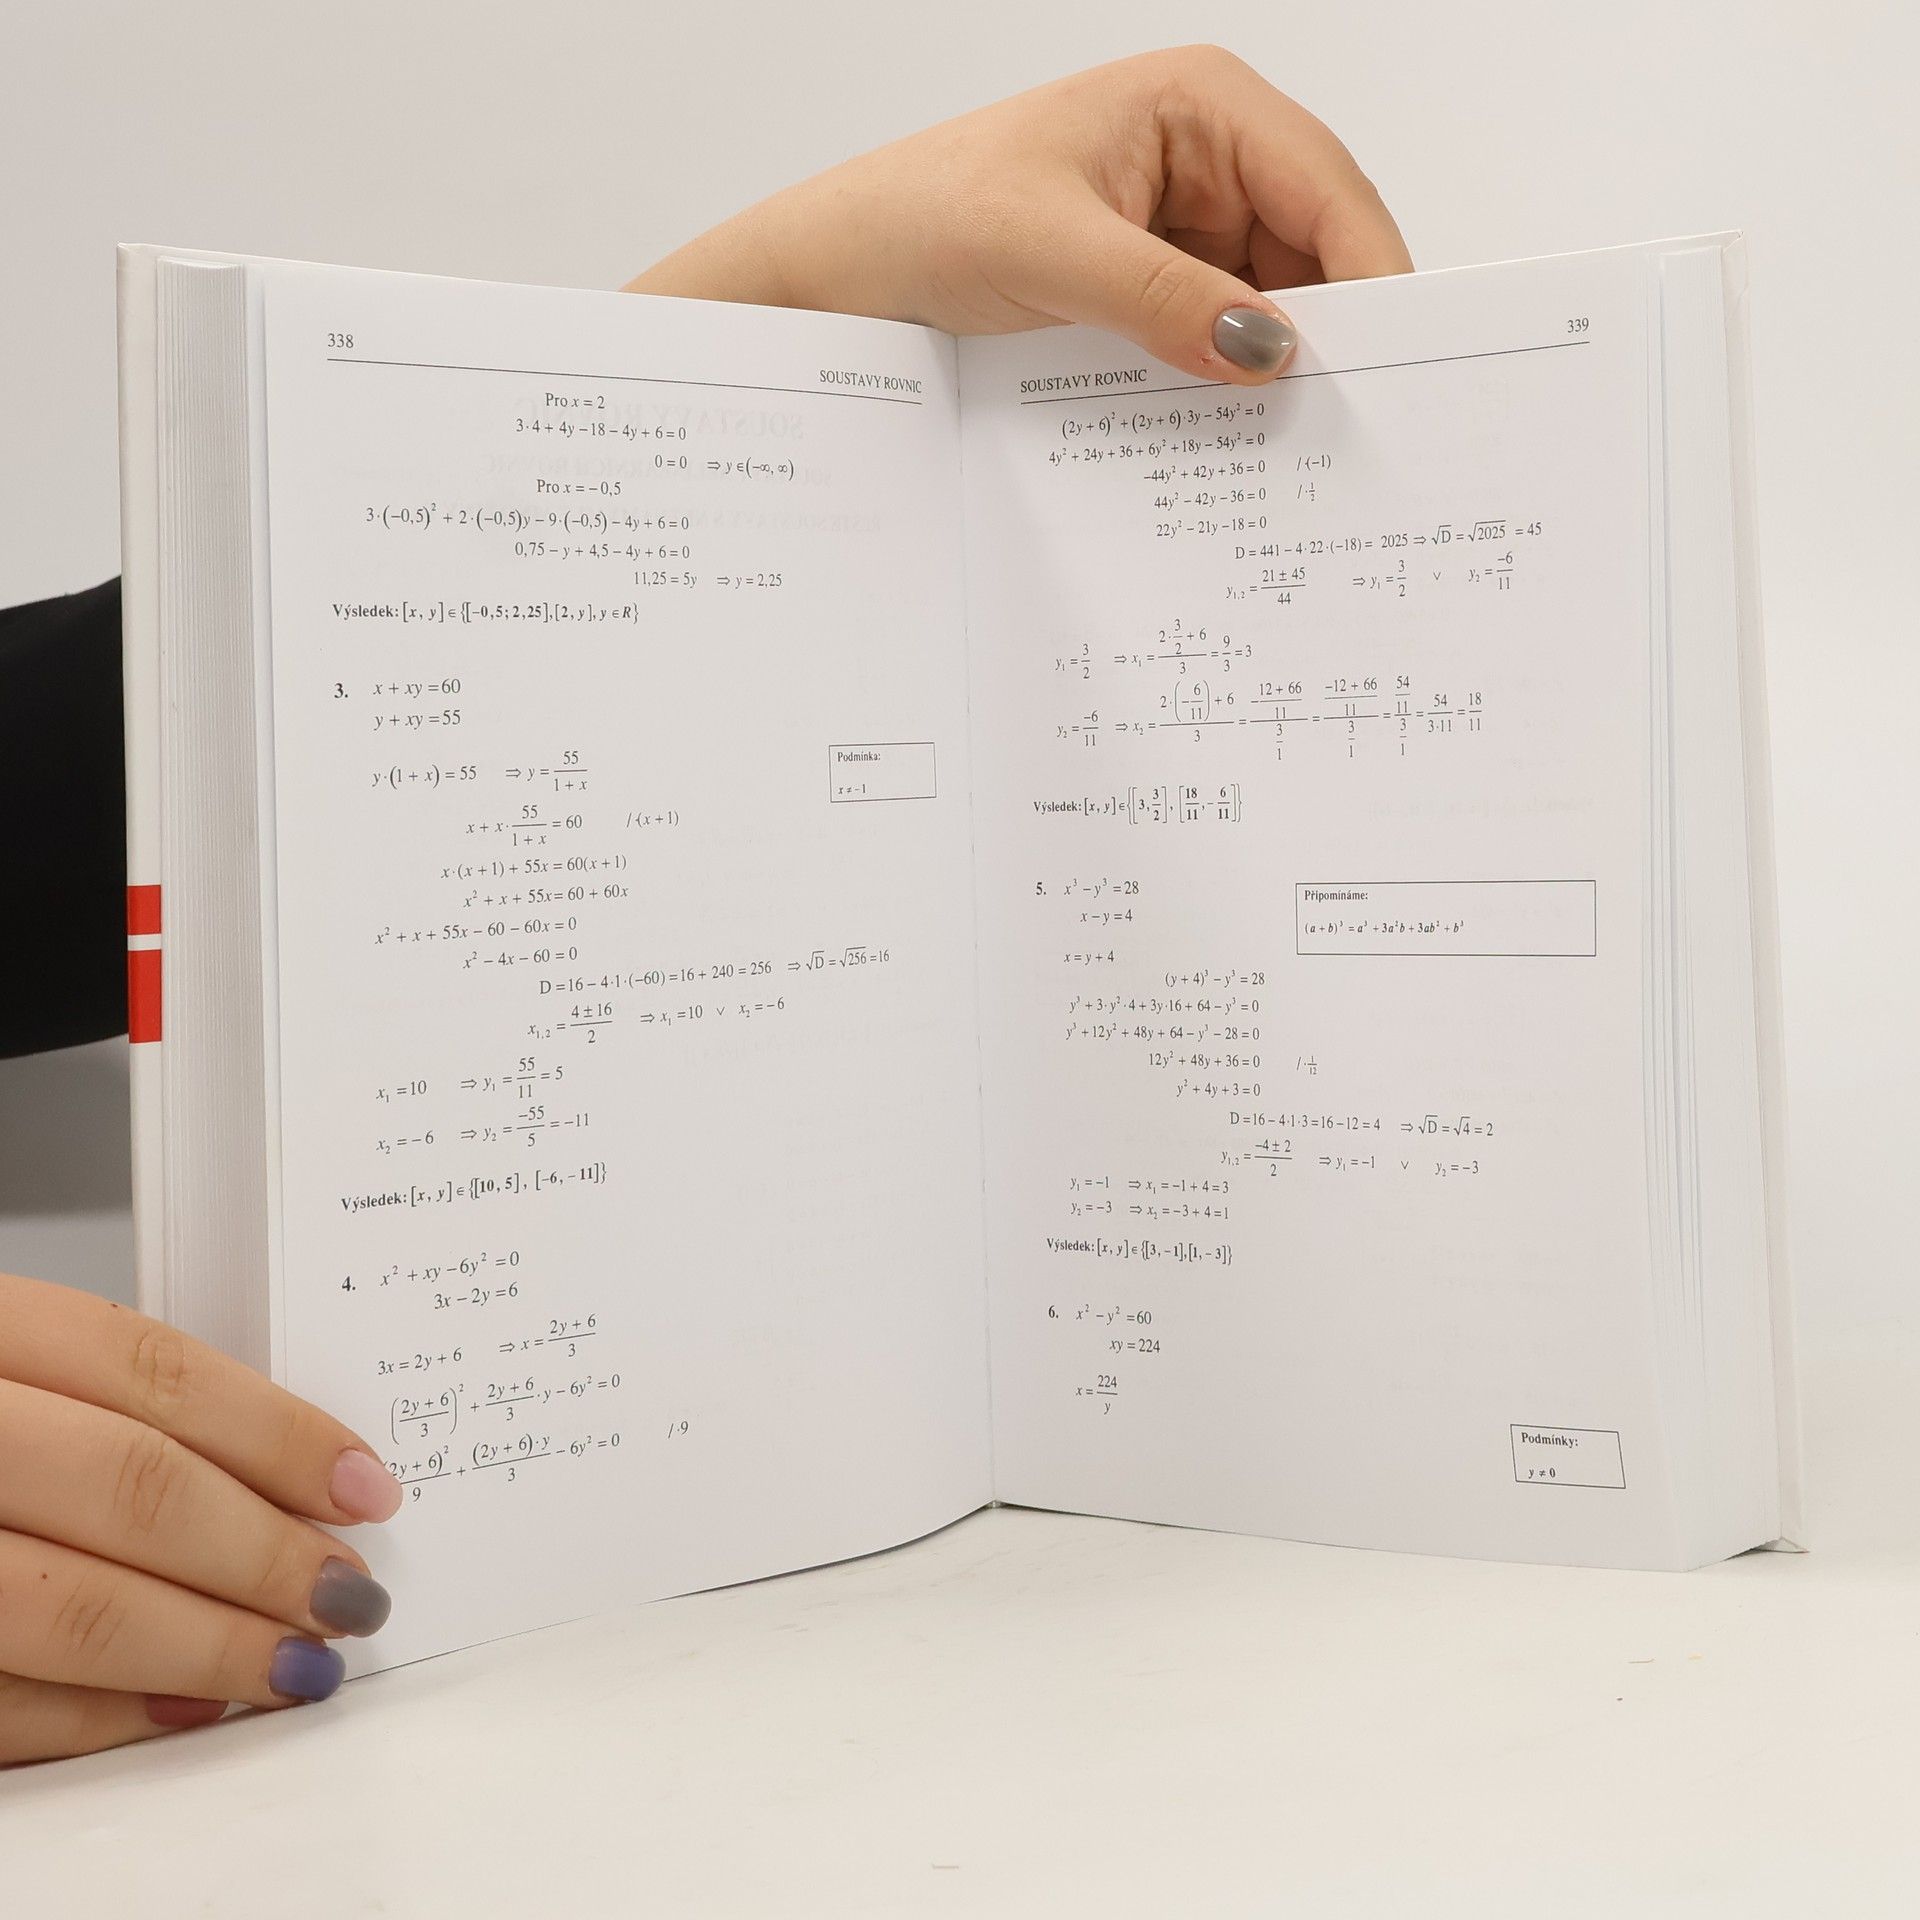 338
SOUSTAVY ROVNIC
Pro x = 2
3·4 + 4y − 18 − 4y + 6 = 0
0 = 0 ⇒ y ∈ (−∞, ∞)
Pro x = −0,5
3·(−0,5)² + 2·(−0,5)y − 9·(−0,5) − 4y + 6 = 0
0,75 − y + 4,5 − 4y + 6 = 0
11,25 = 5y ⇒ y = 2,25
Výsledek: [x, y] ∈ {[−0,5; 2,25], [2, y], y ∈ R}
3. x + xy = 60
y + xy = 55
y·(1 + x) = 55 ⇒ y = 55/(1 + x)
Podmínka:
x ≠ −1
x + x·55/(1 + x) = 60 /·(x + 1)
x·(x + 1) + 55x = 60(x + 1)
x² + x + 55x = 60 + 60x
x² + x + 55x − 60 − 60x = 0
x² − 4x − 60 = 0
D = 16 − 4·1·(−60) = 16 + 240 = 256 ⇒ √D = √256 = 16
x₁,₂ = (4 ± 16)/2 ⇒ x₁ = 10 ∨ x₂ = −6
x₁ = 10 ⇒ y₁ = 55/11 = 5
x₂ = −6 ⇒ y₂ = −55/5 = −11
Výsledek: [x, y] ∈ {[10, 5], [−6, −11]}
4. x² + xy − 6y² = 0
3x − 2y = 6
3x = 2y + 6 ⇒ x = (2y + 6)/3
((2y + 6)/3)² + (2y + 6)/3·y − 6y² = 0
(2y + 6)²/9 + (2y + 6)·y/3 − 6y² = 0 /·9
339
SOUSTAVY ROVNIC
(2y + 6)² + (2y + 6)·3y − 54y² = 0
4y² + 24y + 36 + 6y² + 18y − 54y² = 0
−44y² + 42y + 36 = 0 /·(−1)
44y² − 42y − 36 = 0 /·1/2
22y² − 21y − 18 = 0
D = 441 − 4·22·(−18) = 2025 ⇒ √D = √2025 = 45
y₁,₂ = (21 ± 45)/44 ⇒ y₁ = 3/2 ∨ y₂ = −6/11
y₁ = 3/2 ⇒ x₁ = (2·3/2 + 6)/3 = 9/3 = 3
y₂ = −6/11 ⇒ x₂ = (2·(−6/11) + 6)/3 = (−(12 + 66)/11)/(3/1) = ((−12 + 66)/11)/(3/1) = (54/11)/(3/1) = 54/(3·11) = 18/11
Výsledek: [x, y] ∈ {[3, 3/2], [18/11, −6/11]}
5. x³ − y³ = 28
x − y = 4
Připomínáme:
(a + b)³ = a³ + 3a²b + 3ab² + b³
x = y + 4
(y + 4)³ − y³ = 28
y³ + 3·y²·4 + 3y·16 + 64 − y³ = 0
y³ + 12y² + 48y + 64 − y³ − 28 = 0
12y² + 48y + 36 = 0 /·1/12
y² + 4y + 3 = 0
D = 16 − 4·1·3 = 16 − 12 = 4 ⇒ √D = √4 = 2
y₁,₂ = (−4 ± 2)/2 ⇒ y₁ = −1 ∨ y₂ = −3
y₁ = −1 ⇒ x₁ = −1 + 4 = 3
y₂ = −3 ⇒ x₂ = −3 + 4 = 1
Výsledek: [x, y] ∈ {[3, −1], [1, −3]}
6. x² − y² = 60
xy = 224
x = 224/y
Podmínky:
y ≠ 0